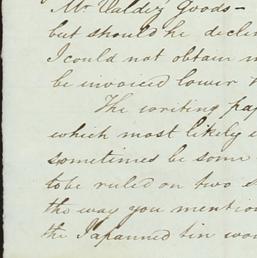 Mr Valdez Goods -
but should he decli
I could not obtain
be invoiced lower
The writing pap
which most likely
sometimes be some
to be ruled on two s
the way you mentio
the Japanned tin wou